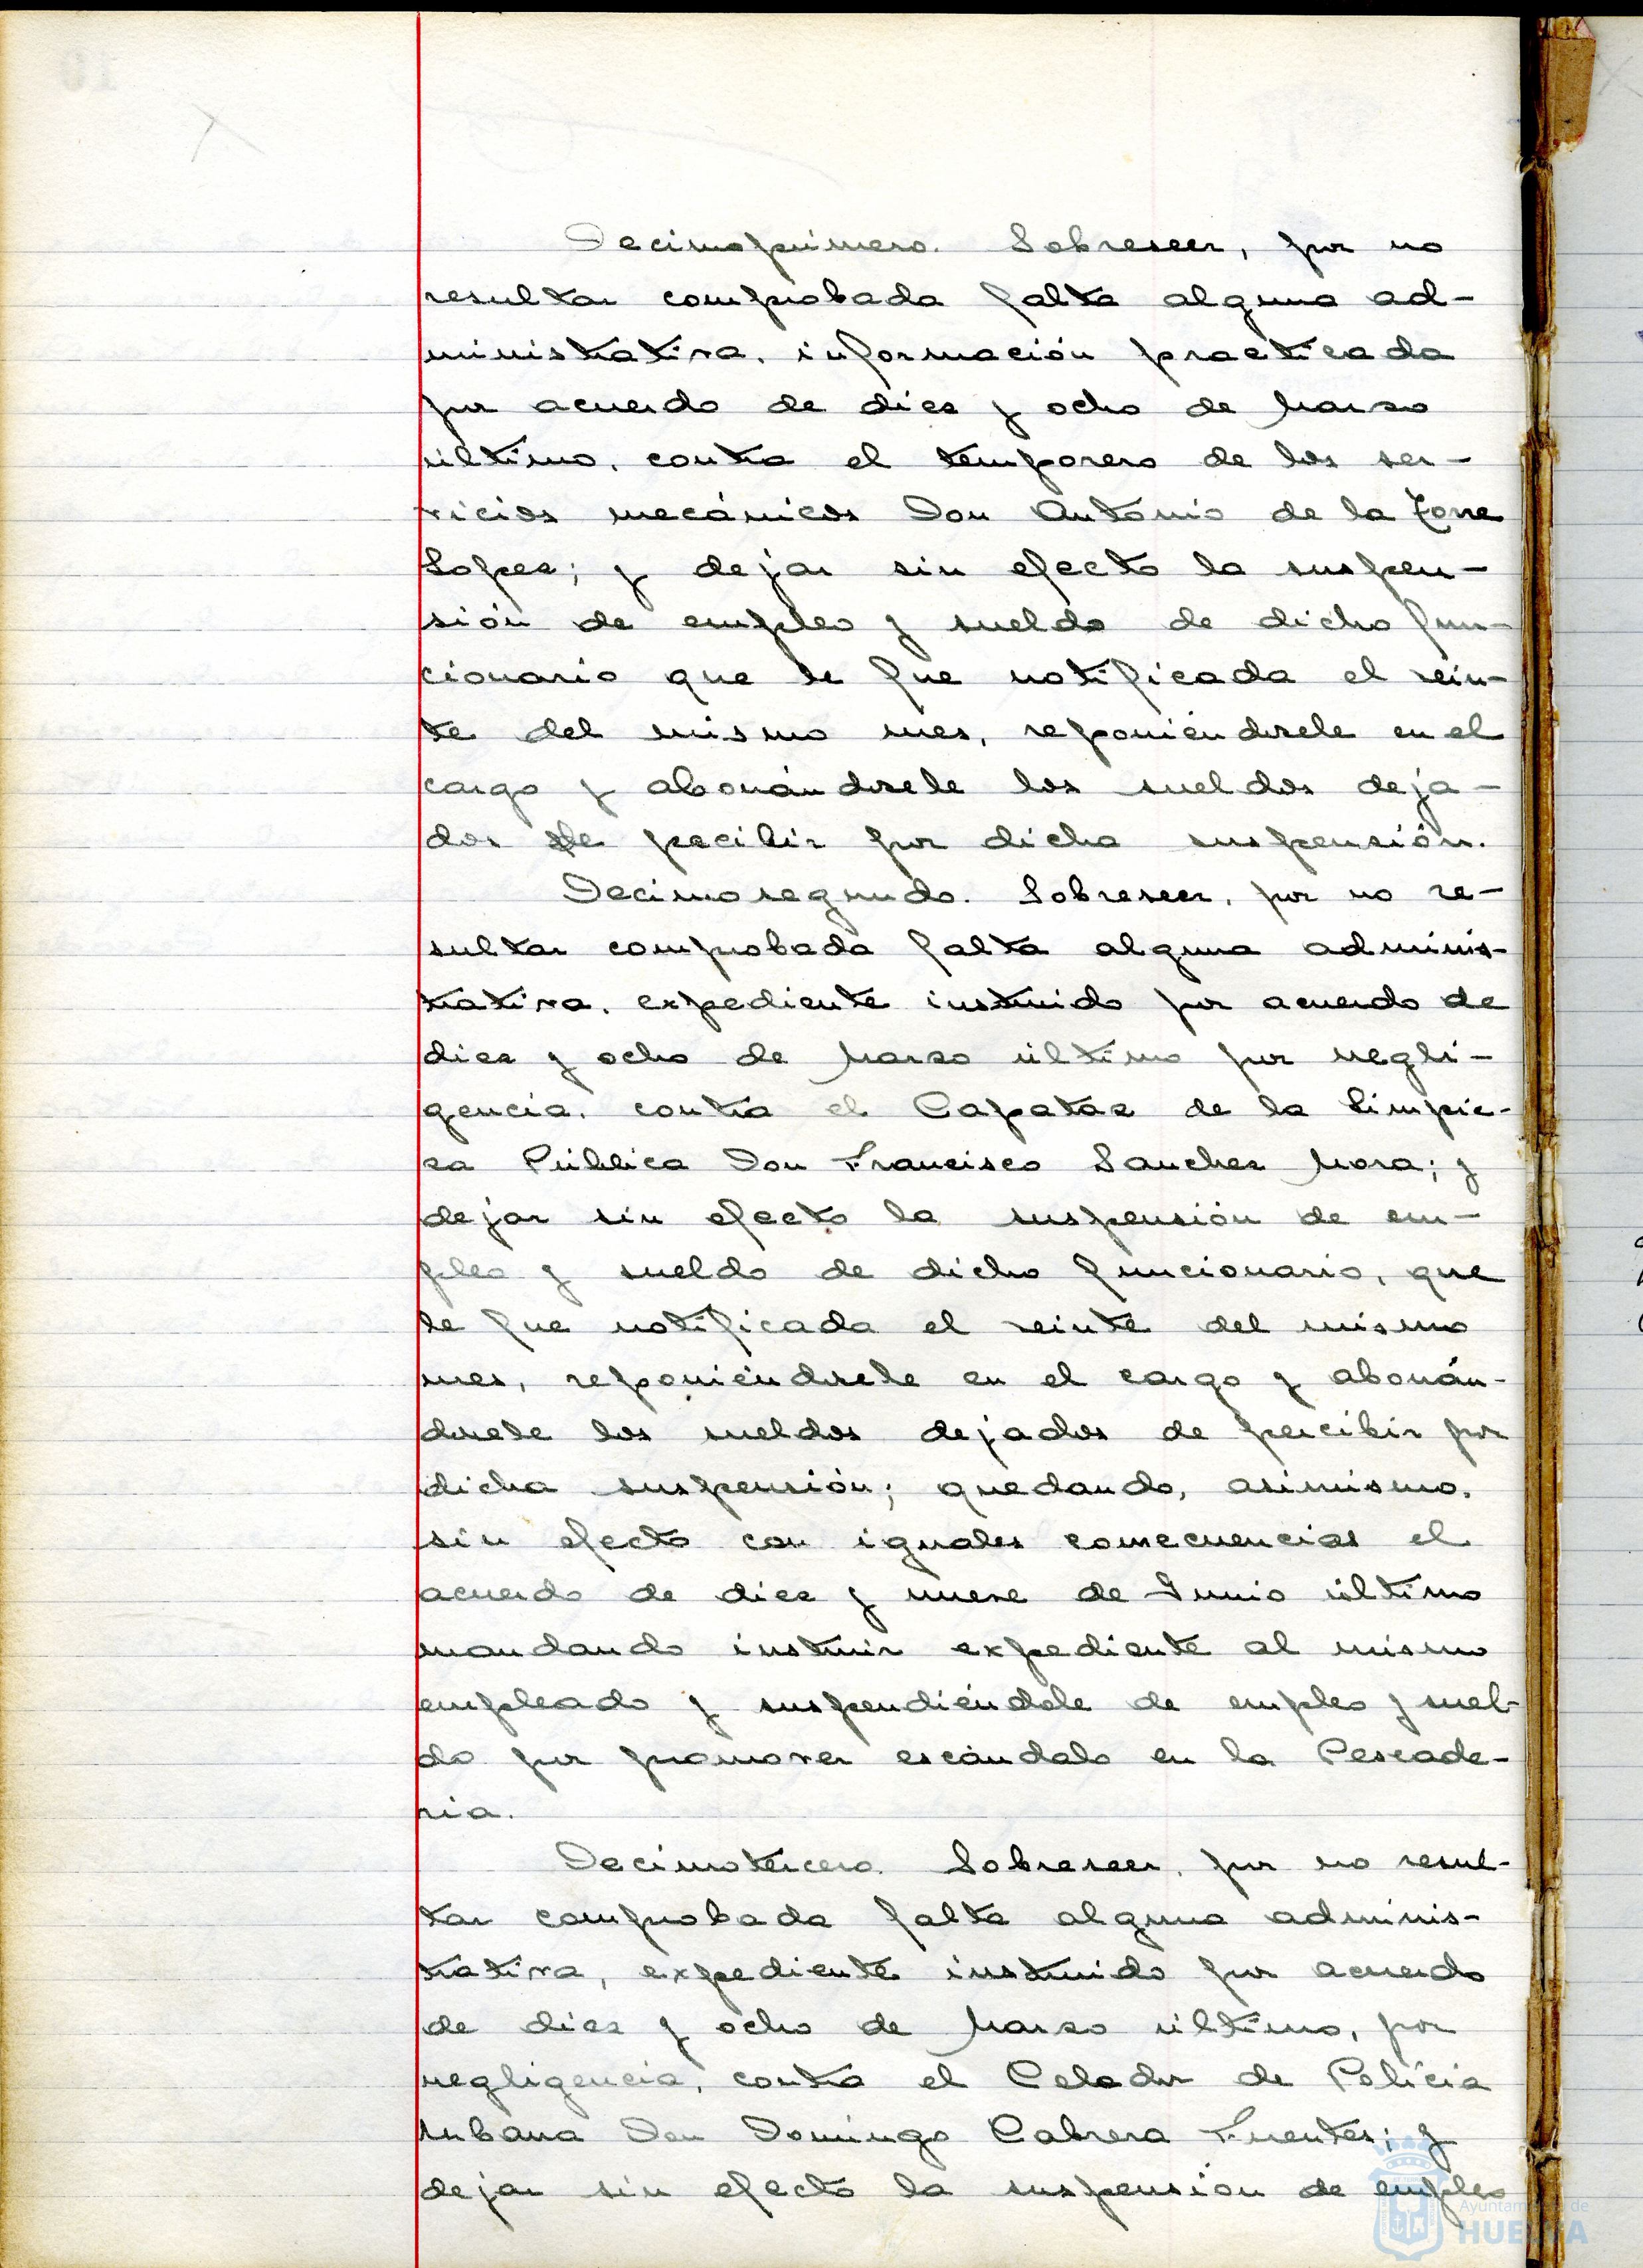 Decimoprimero. Sobreseer, por no
resultar comprobada falta alguna ad-
ministrativa, información practicada
por acuerdo de diez y ocho de Marzo
último, contra el temporero de los ser-
vicios mecánicos Don Antonio de la Torre
Lopez; y dejar sin efecto la suspen-
sión de empleo y sueldo de dicho fun-
cionario que le fue notificada el vein-
te del mismo mes, reponiéndosele en el
cargo y abonándosele los sueldos deja-
dos de pecibir por dicha suspensión.
Decimosegundo. Sobreseer, por no re-
sultar comprobada falta alguna adminis-
trativa, expediente instruido por acuerdo de
diez y ocho de Marzo último por negli-
gencia, contra el Capataz de la Limpie-
za Pública Don Francisco Sanchez Mora; y
dejar sin efecto la suspensión de em-
pleo y sueldo de dicho funcionario, que
le fue notificada el veinte del mismo
mes, reponiéndosele en el cargo y abonán-
dosele los sueldos dejados de percibir por
dicha suspensión; quedando, asimismo,
sin efecto con iguales consecuencias el
acuerdo de diez y nueve de Junio último
mandando instruir expediente al mismo
empleado y suspendiéndole de empleo y suel-
do por promover escándalo en la Pescade-
ria.
Decimotercero. Sobreseer, por no resul-
tar comprobada falta alguna adminis-
trativa, expediente instruido por acuerdo
de diez y ocho de Marzo último, por
negligencia, contra el Celador de Policía
Urbana Don Domingo Cabrera Fuentes; y
dejar sin efecto la suspensión de empleo
Ayuntamiento de
HUELVA